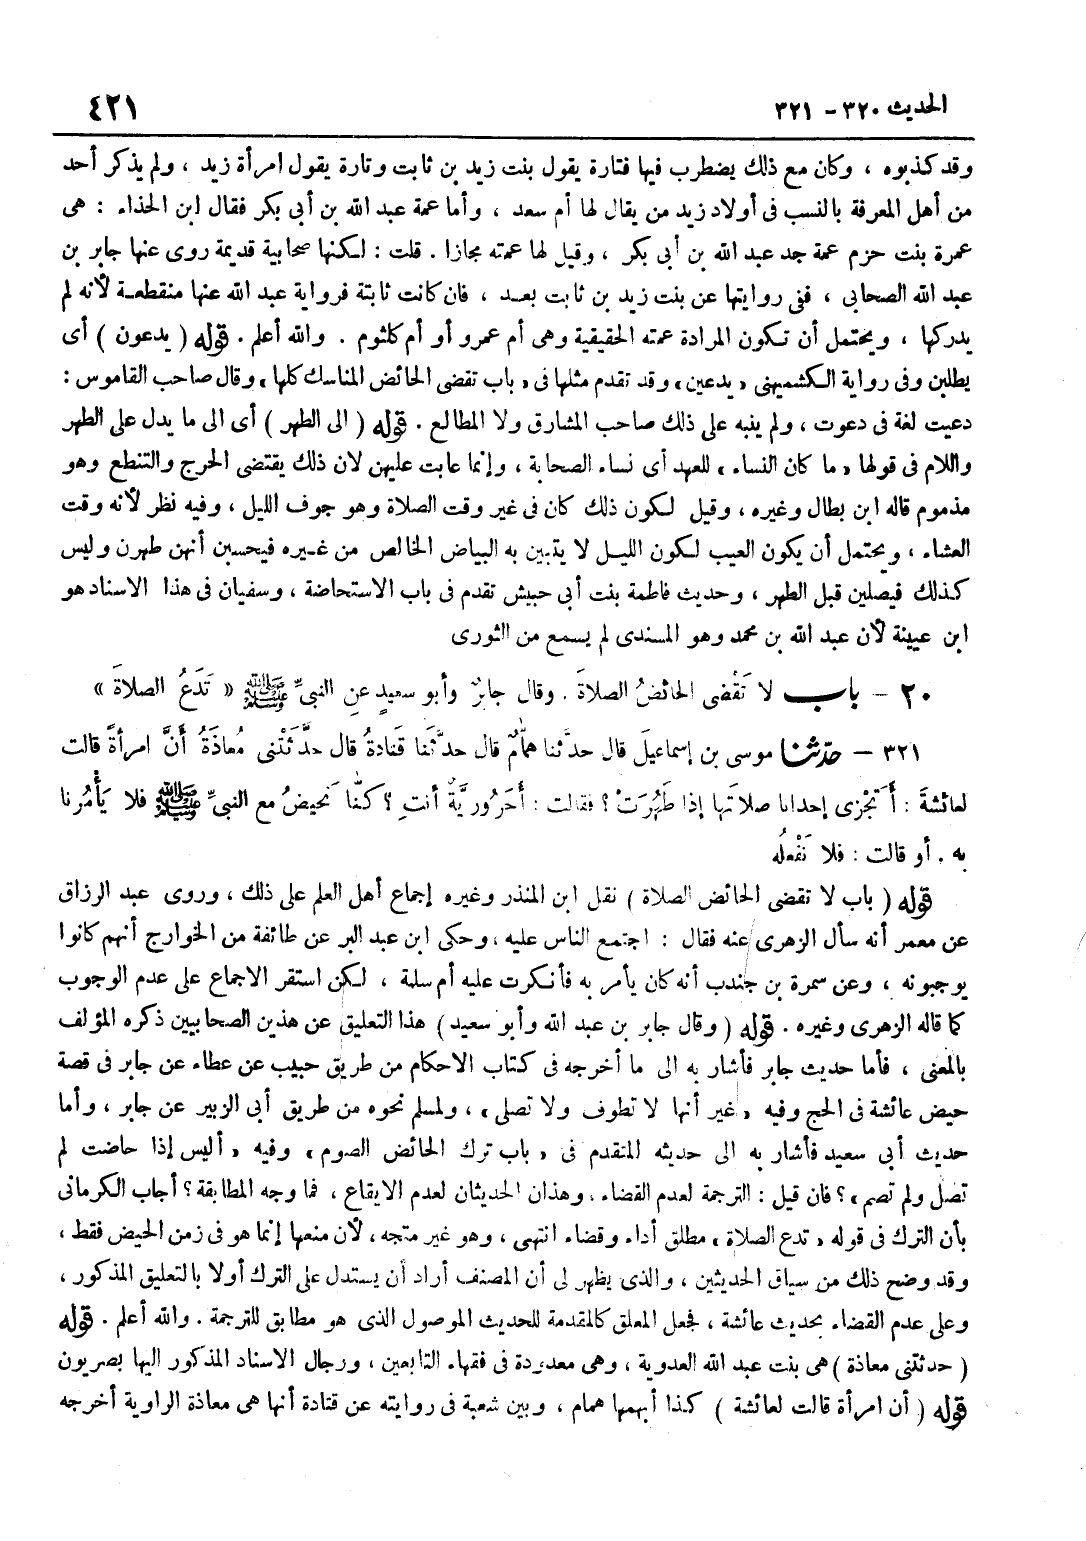 الحديث ٣٢٠ - ٣٢١
٤٢١
وقد كذبوه ، وكان مع ذلك يضطرب فيها فتارة يقول بنت زيد بن ثابت وتارة يقول امرأة زيد ، ولم يذكر أحد
من أهل المعرفة بالنسب فى أولاد زيد من يقال لها أم سعد ، وأما عمة عبد الله بن أبى بكر فقال ابن الحذاء : هى
عمرة بنت حزم عمة جد عبد الله بن أبى بكر ، وقيل لها عمته مجازا . قلت : لكنها صحابية قديمة روى عنها جابر بن
عبد الله الصحابى ، ففى روايتها عن بنت زيد بن ثابت بعد ، فان كانت ثابتة فرواية عبد الله عنها منقطعة لأنه لم
يدركها ، ويحتمل أن تكون المرادة عمته الحقيقية وهى أم عمرو أو أم كلثوم . والله أعلم . قوله ( يدعون ) أى
يطلبن وفى رواية الكشميهنى « يدعين » وقد تقدم مثلها فى « باب تقضى الحائض المناسك كلها » وقال صاحب القاموس :
دعيت لغة فى دعوت ، ولم ينبه على ذلك صاحب المشارق ولا المطالع . قوله ( الى الطهر ) أى الى ما يدل على الطهر
واللام فى قولها « ما كان النساء » للعهد أى نساء الصحابة ، وإنما عابت عليهن لان ذلك يقتضى الحرج والتنطع وهو
مذموم قاله ابن بطال وغيره ، وقيل لكون ذلك كان فى غير وقت الصلاة وهو جوف الليل ، وفيه نظر لأنه وقت
العشاء ، ويحتمل أن يكون العيب لكون الليل لا يتبين به البياض الخالص من غيره فيحسبن أنهن طهرن وليس
كذلك فيصلين قبل الطهر ، وحديث فاطمة بنت أبى حبيش تقدم فى باب الاستحاضة ، وسفيان فى هذا الاسناد هو
ابن عيينة لأن عبد الله بن محمد وهو المسندى لم يسمع من الثورى
٢٠ - باب لا تَقْضى الحائضُ الصلاةَ . وقال جابرٌ وأبو سعيدٍ عنِ النبىِّ ﷺ « تَدَعُ الصلاةَ »
٣٢١ - حدّثنا موسى بن إسماعيلَ قال حدَّثنا همّامٌ قال حدَّثَنا قتادةُ قال حدَّثَتْنى مُعاذَةُ أنَّ امرأةً قالت
لعائشةَ : أَتَجْزى إحدانا صلاتَها إذا طَهُرَتْ ؟ فقالت : أَحَرُوريَّةٌ أنتِ ؟ كنّا نَحيضُ مع النبىِّ ﷺ فلا يَأْمُرنا
به . أو قالت : فلا نَفْعلُه
قوله ( باب لا تقضى الحائض الصلاة ) نقل ابن المنذر وغيره إجماع أهل العلم على ذلك ، وروى عبد الرزاق
عن معمر أنه سأل الزهرى عنه فقال : اجتمع الناس عليه ، وحكى ابن عبد البر عن طائفة من الخوارج أنهم كانوا
يوجبونه ، وعن سمرة بن جندب أنه كان يأمر به فأنكرت عليه أم سلمة ، لكن استقر الاجماع على عدم الوجوب
كما قاله الزهرى وغيره . قوله ( وقال جابر بن عبد الله وأبو سعيد ) هذا التعليق عن هذين الصحابيين ذكره المؤلف
بالمعنى ، فأما حديث جابر فأشار به الى ما أخرجه فى كتاب الاحكام من طريق حبيب عن عطاء عن جابر فى قصة
حيض عائشة فى الحج وفيه « غير أنها لا تطوف ولا تصلى » ، ولمسلم نحوه من طريق أبى الزبير عن جابر ، وأما
حديث أبى سعيد فأشار به الى حديثه المتقدم فى « باب ترك الحائض الصوم » وفيه « أليس إذا حاضت لم
تصل ولم تصم » ؟ فان قيل : الترجمة لعدم القضاء ، وهذان الحديثان لعدم الايقاع ، فما وجه المطابقة ؟ أجاب الكرمانى
بأن الترك فى قوله « تدع الصلاة » مطلق أداء وقضاء انتهى ، وهو غير متجه ، لأن منعها إنما هو فى زمن الحيض فقط ،
وقد وضح ذلك من سياق الحديثين ، والذى يظهر لى أن المصنف أراد أن يستدل على الترك أولا بالتعليق المذكور ،
وعلى عدم القضاء بحديث عائشة ، فجعل المعلق كالمقدمة للحديث الموصول الذى هو مطابق للترجمة . والله أعلم . قوله
( حدثتنى معاذة ) هى بنت عبد الله العدوية ، وهى معدودة فى فقهاء التابعين ، ورجال الاسناد المذكور اليها بصريون
قوله ( أن امرأة قالت لعائشة ) كذا أبهمها همام ، وبين شعبة فى روايته عن قتادة أنها هى معاذة الراوية أخرجه